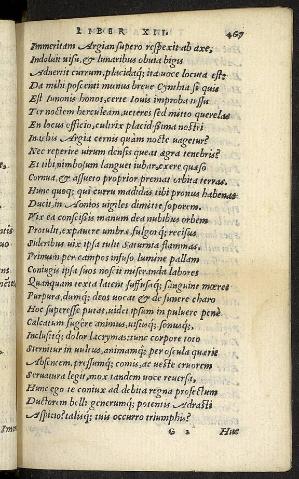 LIBER XII. 467
Immeritam Argian supero respexit ab axe,
Indoluit uisu, & lunaribus obuia bigis
Aduertit currum, placidaq; ita uoce locuta est:
Da mihi poscenti munus breue Cynthia si quis
Est Iunonis honos, certe Iouis improba iussu
Ter noctem herculeam, ueteres sed mitto querelas
En locus officio, cultrix placidissima nostri
Inachis Argia cernis quám nocte uagetur?
Nec reperire uirum densis queat ægra tenebris?
Et tibi nimbosum languet iubar, exere quæso
Cornua, & assueto proprior premat orbita terras.
Hunc quoq; qui curru madidas tibi pronus habenas
Ducit, in Aonios uigiles dimitte soporem.
Vix ea conscissis manum dea nubibus orbem
Protulit, expauere umbræ, fulgorq; recisus
Sideribus uix ipsa tulit Saturnia flammas.
Primum per campos infuso lumine pallam
Coniugis ipsa suos noscit miseranda labores
Quanquam texta latent suffusaq; sanguine mœret
Purpura, dumq; deos uocat & de funere charo
Hoc superesse putat, uidet ipsum in puluere pene
Calcatum fugere animus, uisusq; sonusq;,
Inclusitq; dolor lacrymas, tunc corpore toto
Sternitur in uultus, animamq; per oscula quærit
Absentem, pressumq; comis, ac ueste cruorem
Seruatura legit, mox tandem uoce reuersa,
Hunc ego te coniux ad debita regna profectum
Ductorem belli, generumq; potentis Adrasti
Aspicio? talisq; tuis occurro triumphis?
G 2 Huc